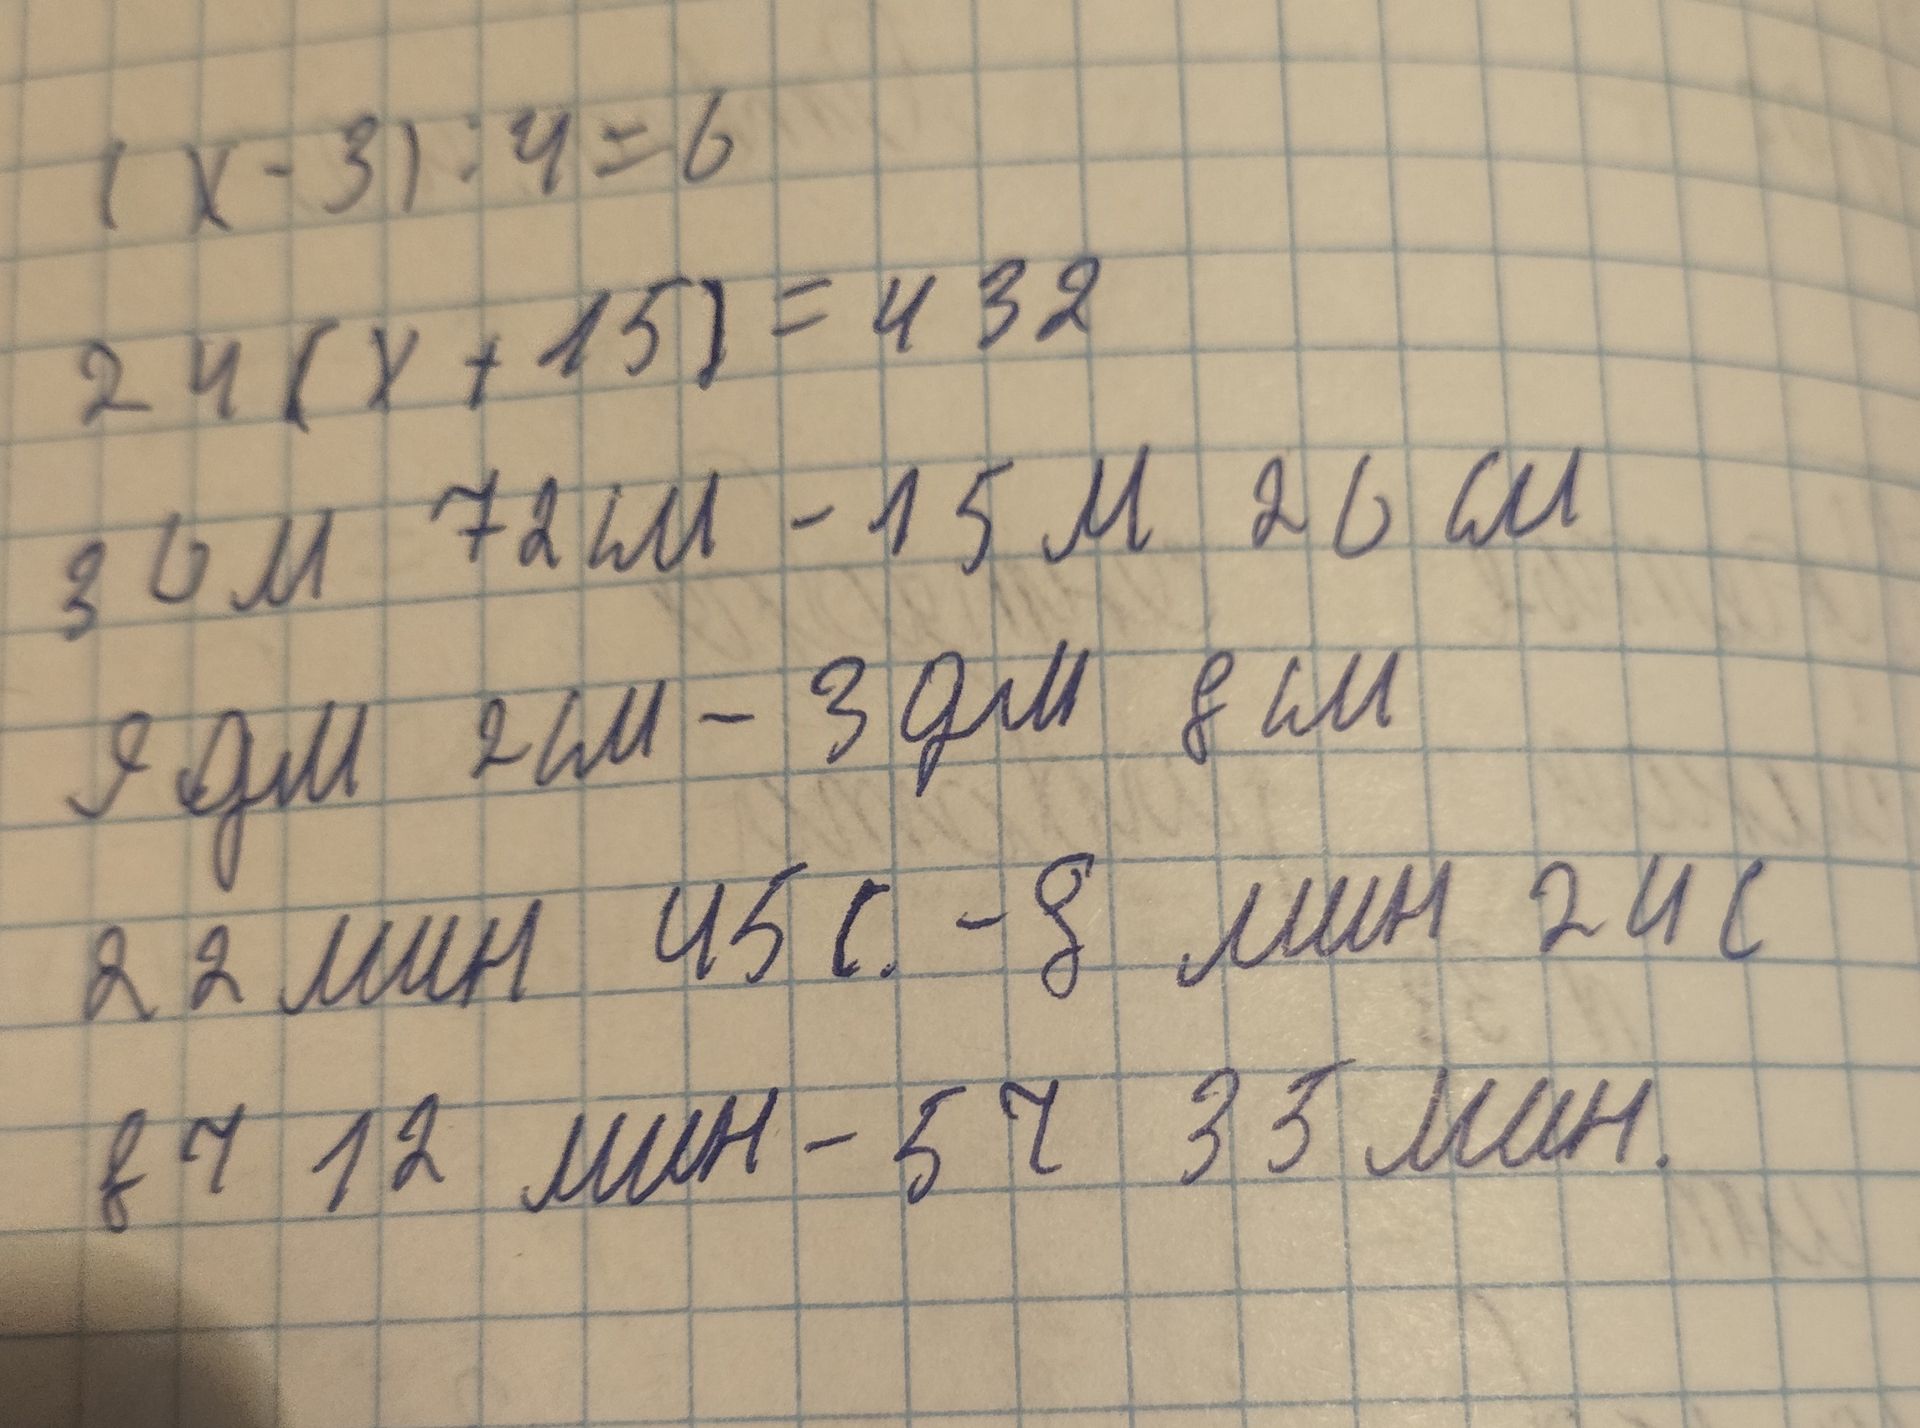 (x-3):4=6
24(x+15)=432
30м 72см - 15м 20см
9дм 2см - 3дм 8см
22мин 45с. - 8 мин 24с
8ч 12 мин - 5ч 35мин.